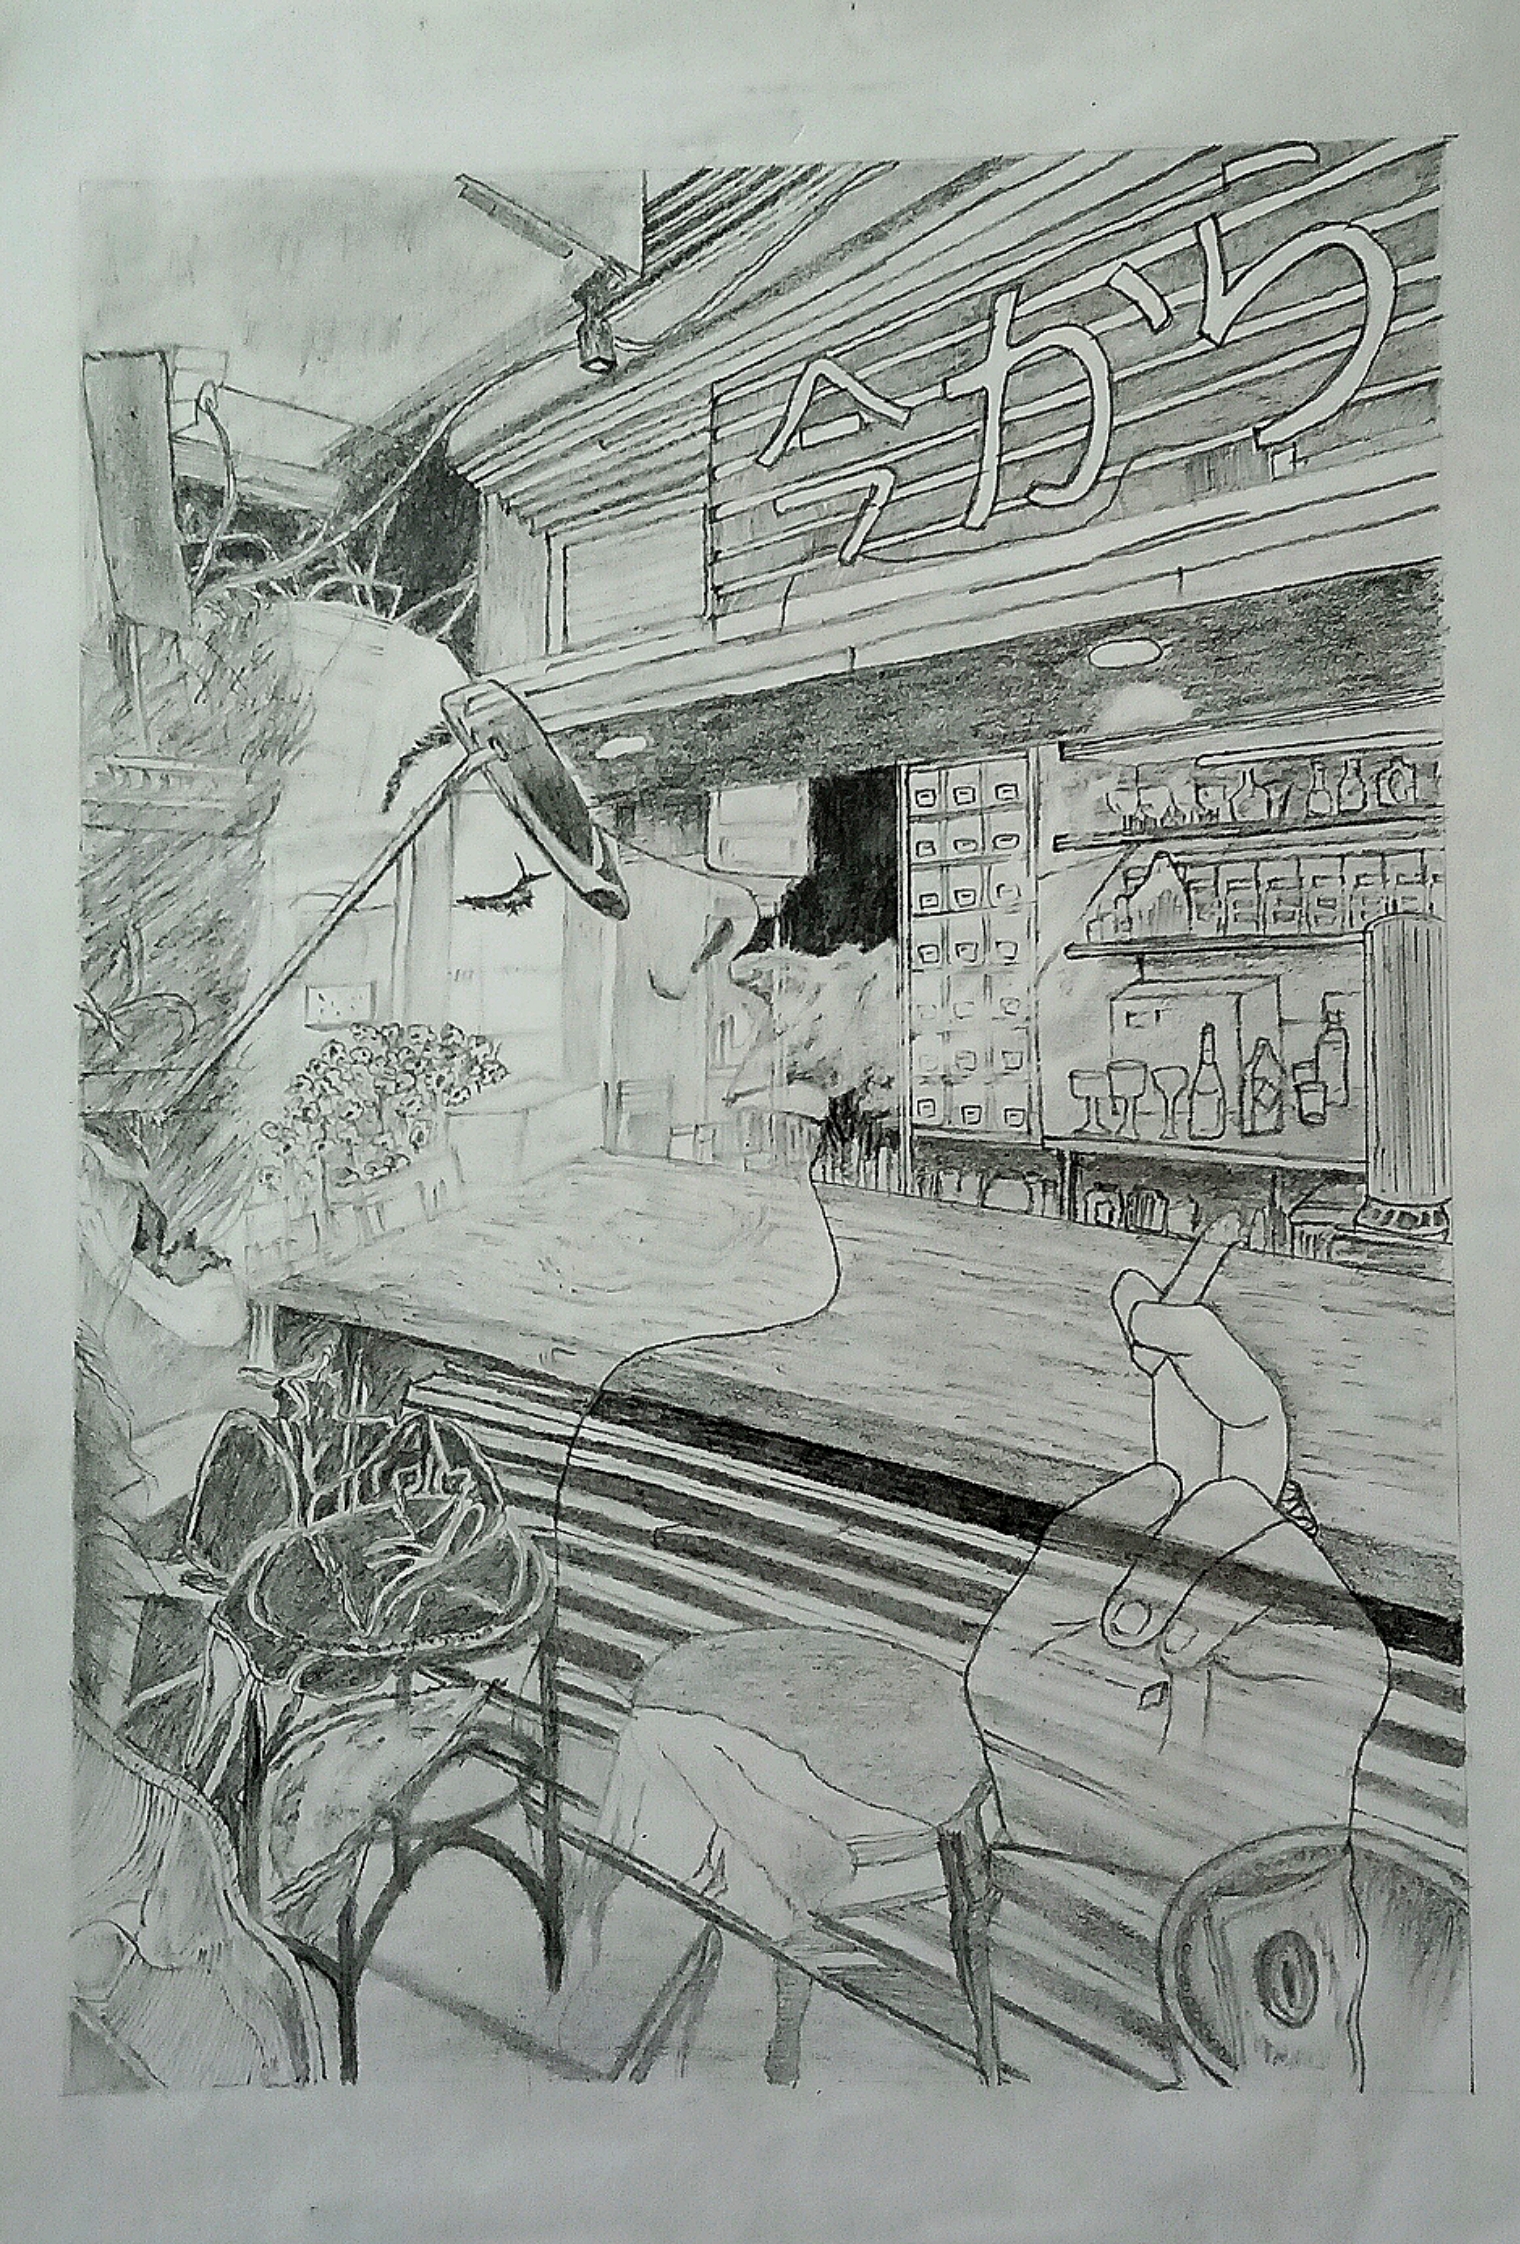 今から